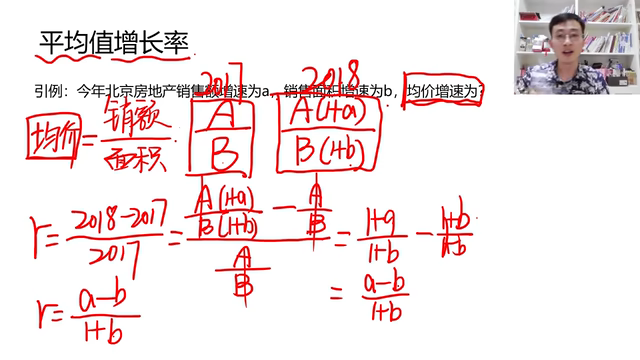 平均值增长率
引例：今年北京房地产销售额增速为a，销售面积增速为b，均价增速为？
2017 2018
均价=销额/面积 A/B A(1+a)/B(1+b)
r=2018-2017/2017=A(1+a)/B(1+b)-A/B/A/B=1+a/1+b-1+b/1+b
r=a-b/1+b =a-b/1+b